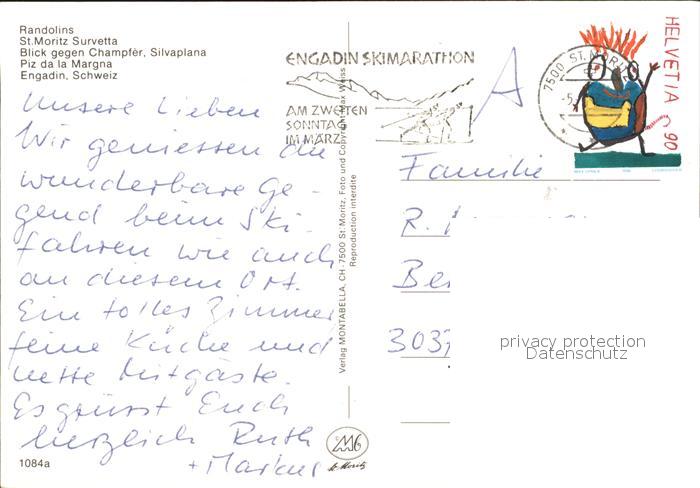 Randolins
St.Moritz Survetta
Blick gegen Champfèr, Silvaplana
Piz da la Margna
Engadin, Schweiz
Unsere Lieben
Wir geniessen die
wunderbare Ge-
gend beim Ski-
fahren wie auch
an diesem Ort.
Ein tolles Zimmer
feine Küche und
nette Mitgäste.
Es grüsst Euch
herzlich Ruth
+ Markus
1084a
Verlag MONTABELLA, CH-7500 St. Moritz, Foto und Copyright Max Weiss
Reproduction interdite
MG
St. Moritz
ENGADIN SKIMARATHON
AM ZWEITEN
SONNTAG
IM MÄRZ
A
7500 ST. MORITZ
HELVETIA
90
Familie
R.
3037
privacy protection
Datenschutz